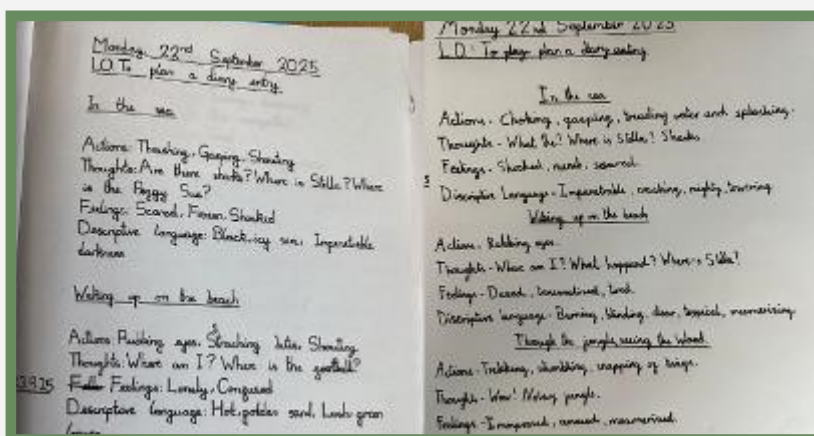 Monday 22nd September 2025
LO: To plan a diary entry
In the sea
Actions: Thrashing, Gasping, Shouting
Thoughts: Are there sharks? Where is Stella? Where
is the Peggy Sue?
Feelings: Scared, Frozen, Shocked
Descriptive language: Black, icy sea, Impenetrable
darkness
Waking up on the beach
Actions: Rubbing eyes, Shouting
Thoughts: Where am I? Where is the football?
Feelings: Lonely, Confused
Descriptive language: Hot, golden sand, Lush green
Monday 22nd September 2025
L.O: To plan a diary entry
In the sea
Actions - Choking, gasping, treading water and splashing.
Thoughts - What the? Where is Stella? Sharks
Feelings - Shocked, numb, scared.
Descriptive Language - Impenetrable, crashing, mighty, towering
Waking up on the beach
Actions - Rubbing eyes.
Thoughts - Where am I? What happend? Where is Stella?
Feelings - Dazed, traumatised, tired.
Descriptive language - Burning, blinding, clear, tropical, mesmerising
Through the jungle, seeing the island
Actions - Trekking, stumbling, snapping of twigs.
Thoughts - Wow! Noisy jungle.
Feelings - Impressed, amazed, mesmerised.